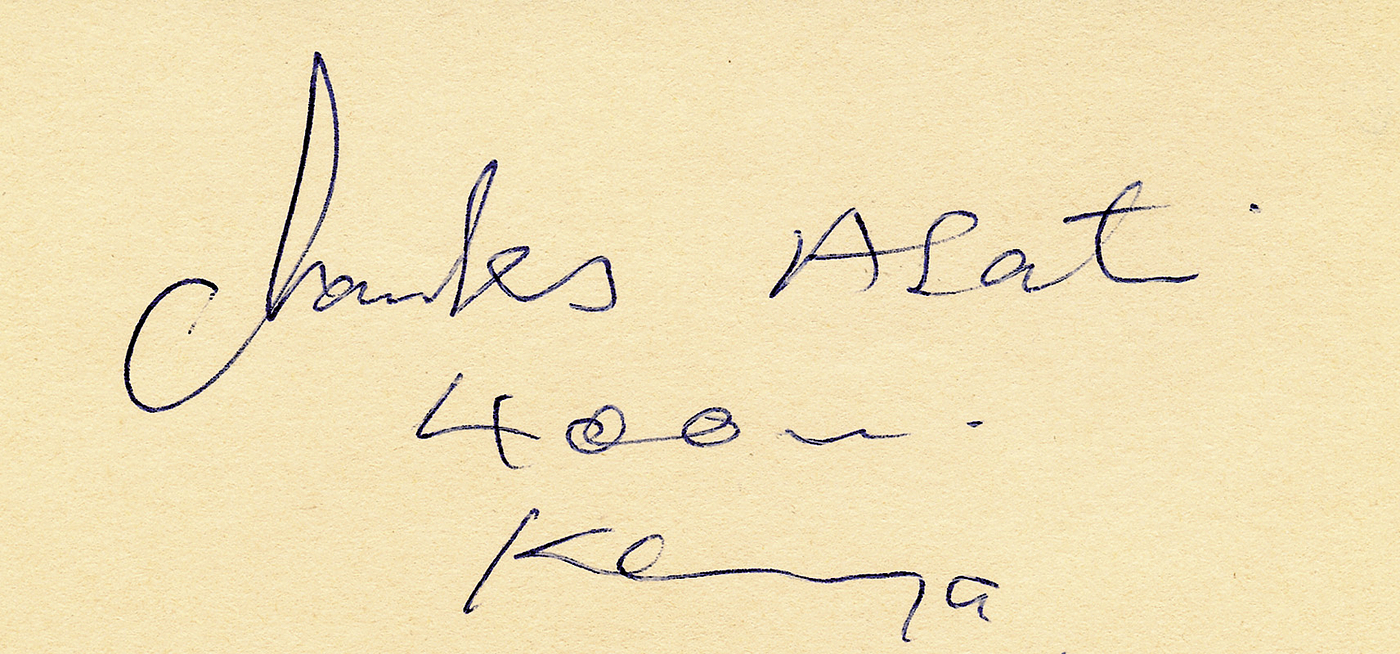 Charles Asati
400m.
Kenya